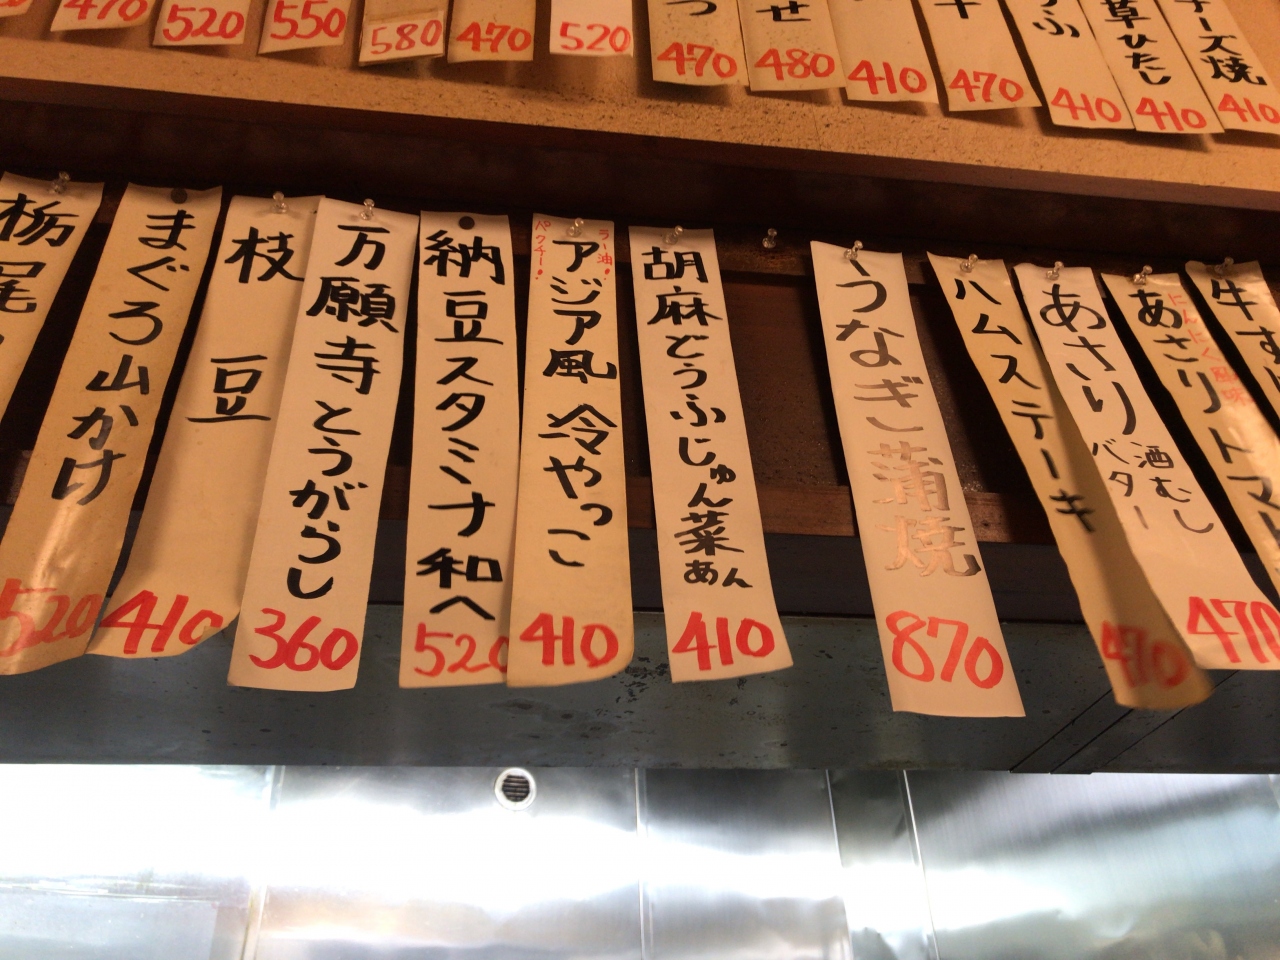 470
520
550
580
470
520
つ
470
せ
480
410
470
ふ
410
草ひたし
410
チーズ焼
410
栃尾
まぐろ山かけ
520
枝豆
410
万願寺とうがらし
360
納豆スタミナ和へ
520
ラー油!
アジア風冷やっこ
パクチー!
410
胡麻どうふじゅん菜あん
410
うなぎ蒲焼
870
ハムステーキ
470
あさり
酒むし
バター
470
にんにく風味
あさりトマト
牛す